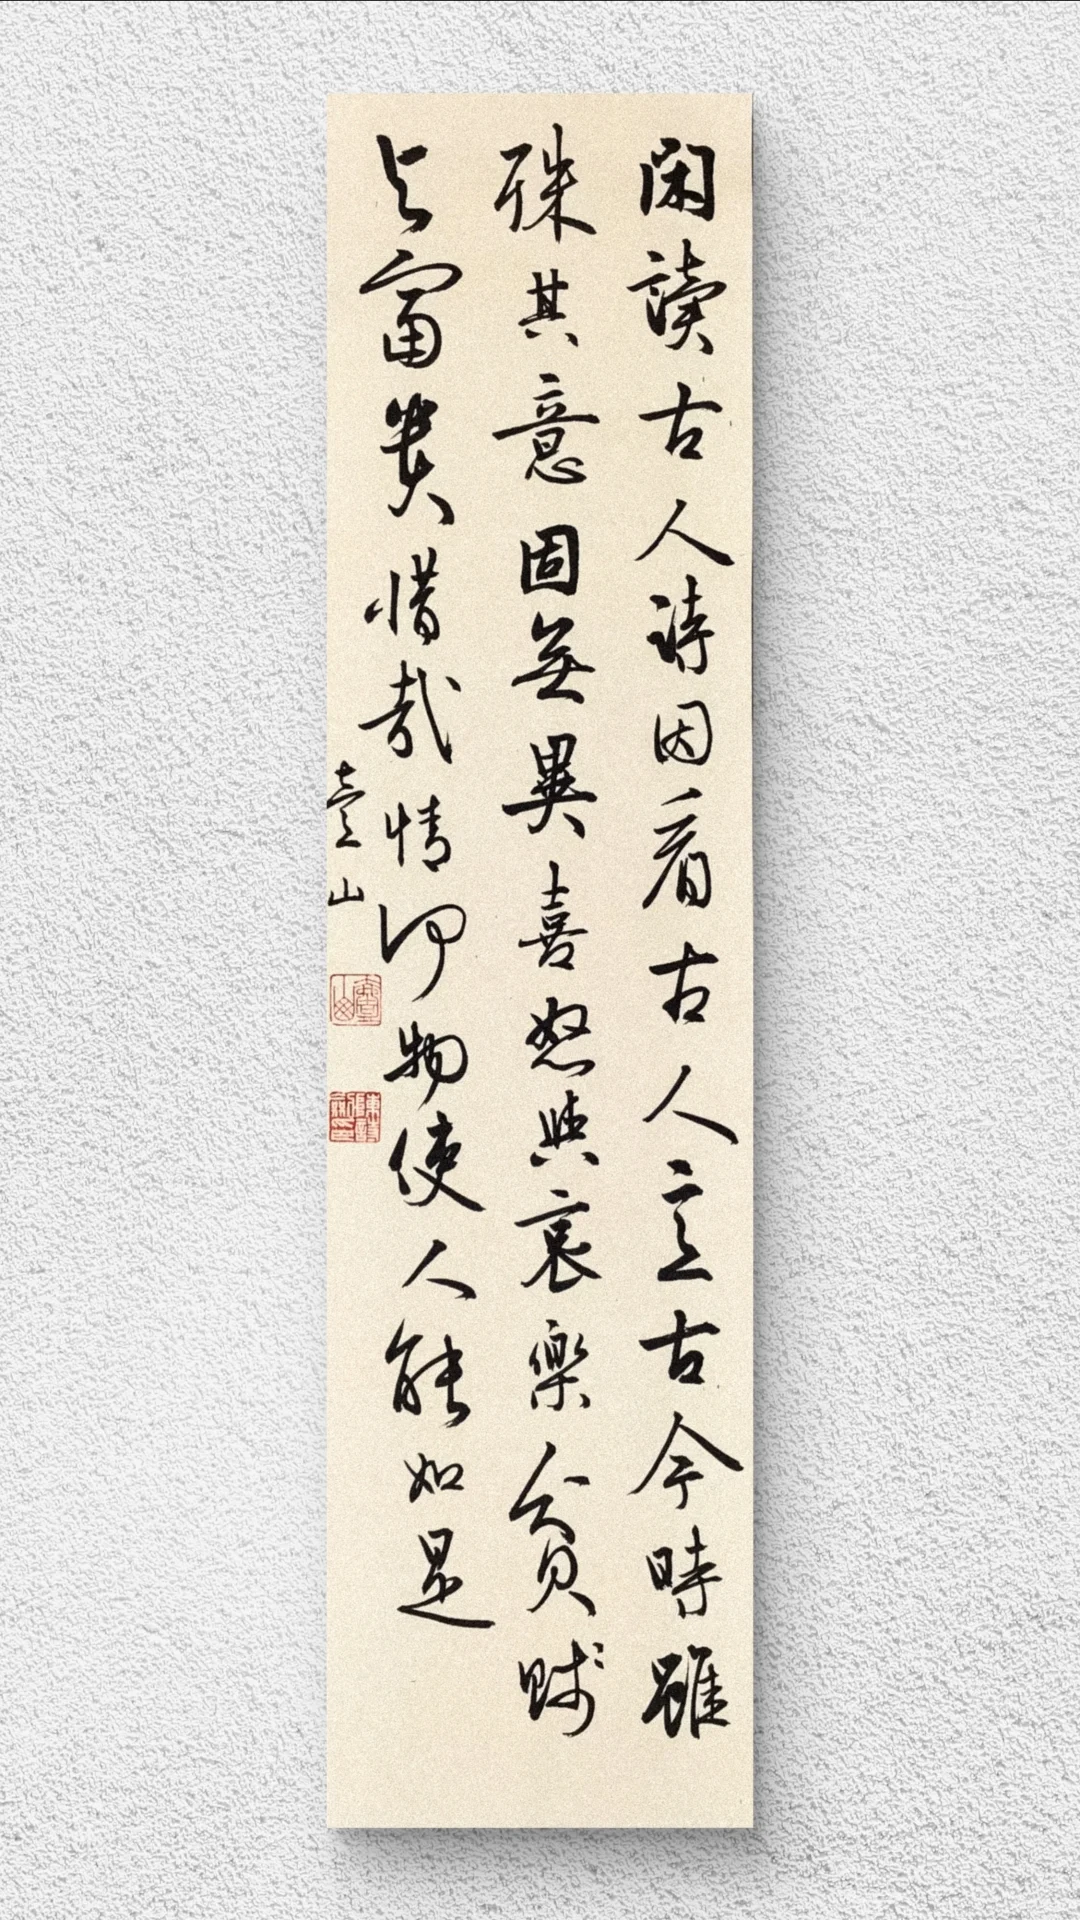 閑讀古人詩因看古人意古今時雖
殊其意固無異喜怒與哀樂貧賤
與富貴惜哉情何物使人能如是
山